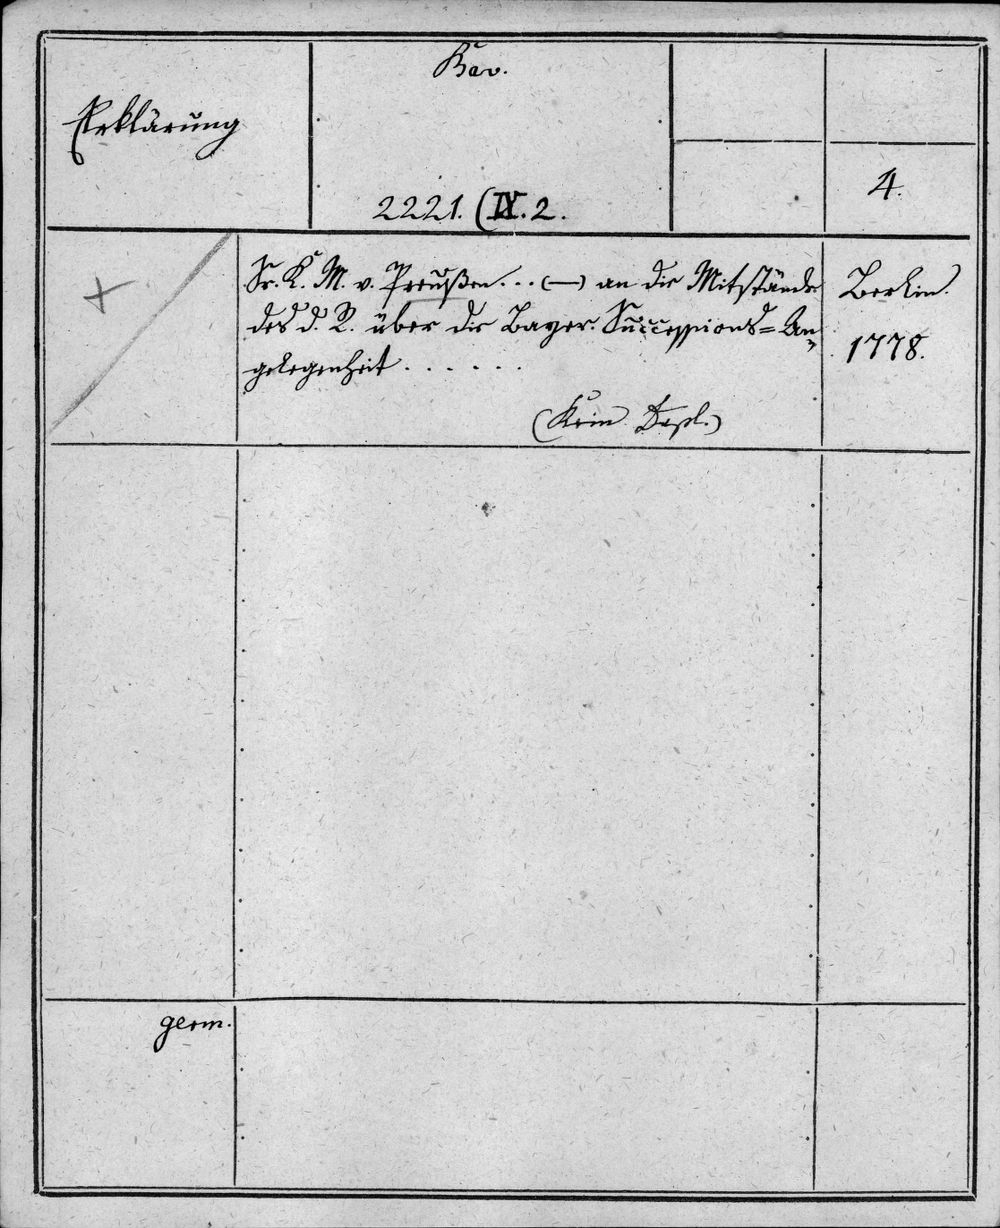 Erklärung
Bav.
2221. (IX. 2.
4.
+
Sr. K. M. v. Preußen... (—) an die Mitstände
des d. R. über die Bayer. Successions= An=
gelegenheit . . . . . .
(Kein Dupl.)
Berlin.
1778.
germ.